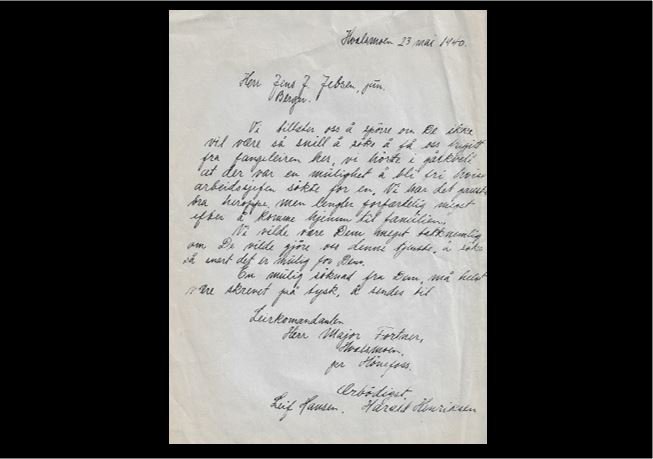 Hvalsmoen 23 mai 1940.
Herr Jens J. Jebsen, jun.
Bergen.
Vi tillater oss å spørre om De ikke
vil være så snill å søke å få oss frigitt
fra fangeleiren her, vi hørte i går kveld
at der var en mulighet å bli fri hvis
arbeidsgiferen søkte for en. Vi har det ganske
bra heroppe, men lengter forfærdelig meget
efter å komme hjem til familien.
Vi vilde være Dem meget taknemlig
om De vilde gjøre oss denne tjeneste, å søke
så snart det er mulig for Dem.
En mulig søknad fra Dem, må helst
være skrevet på tysk, å sendes til
Leirkomandanten
Herr Major Fortner,
Hvalsmoen,
per Hönefoss.
Ærbødigst,
Leif Hansen. Harald Henriksen